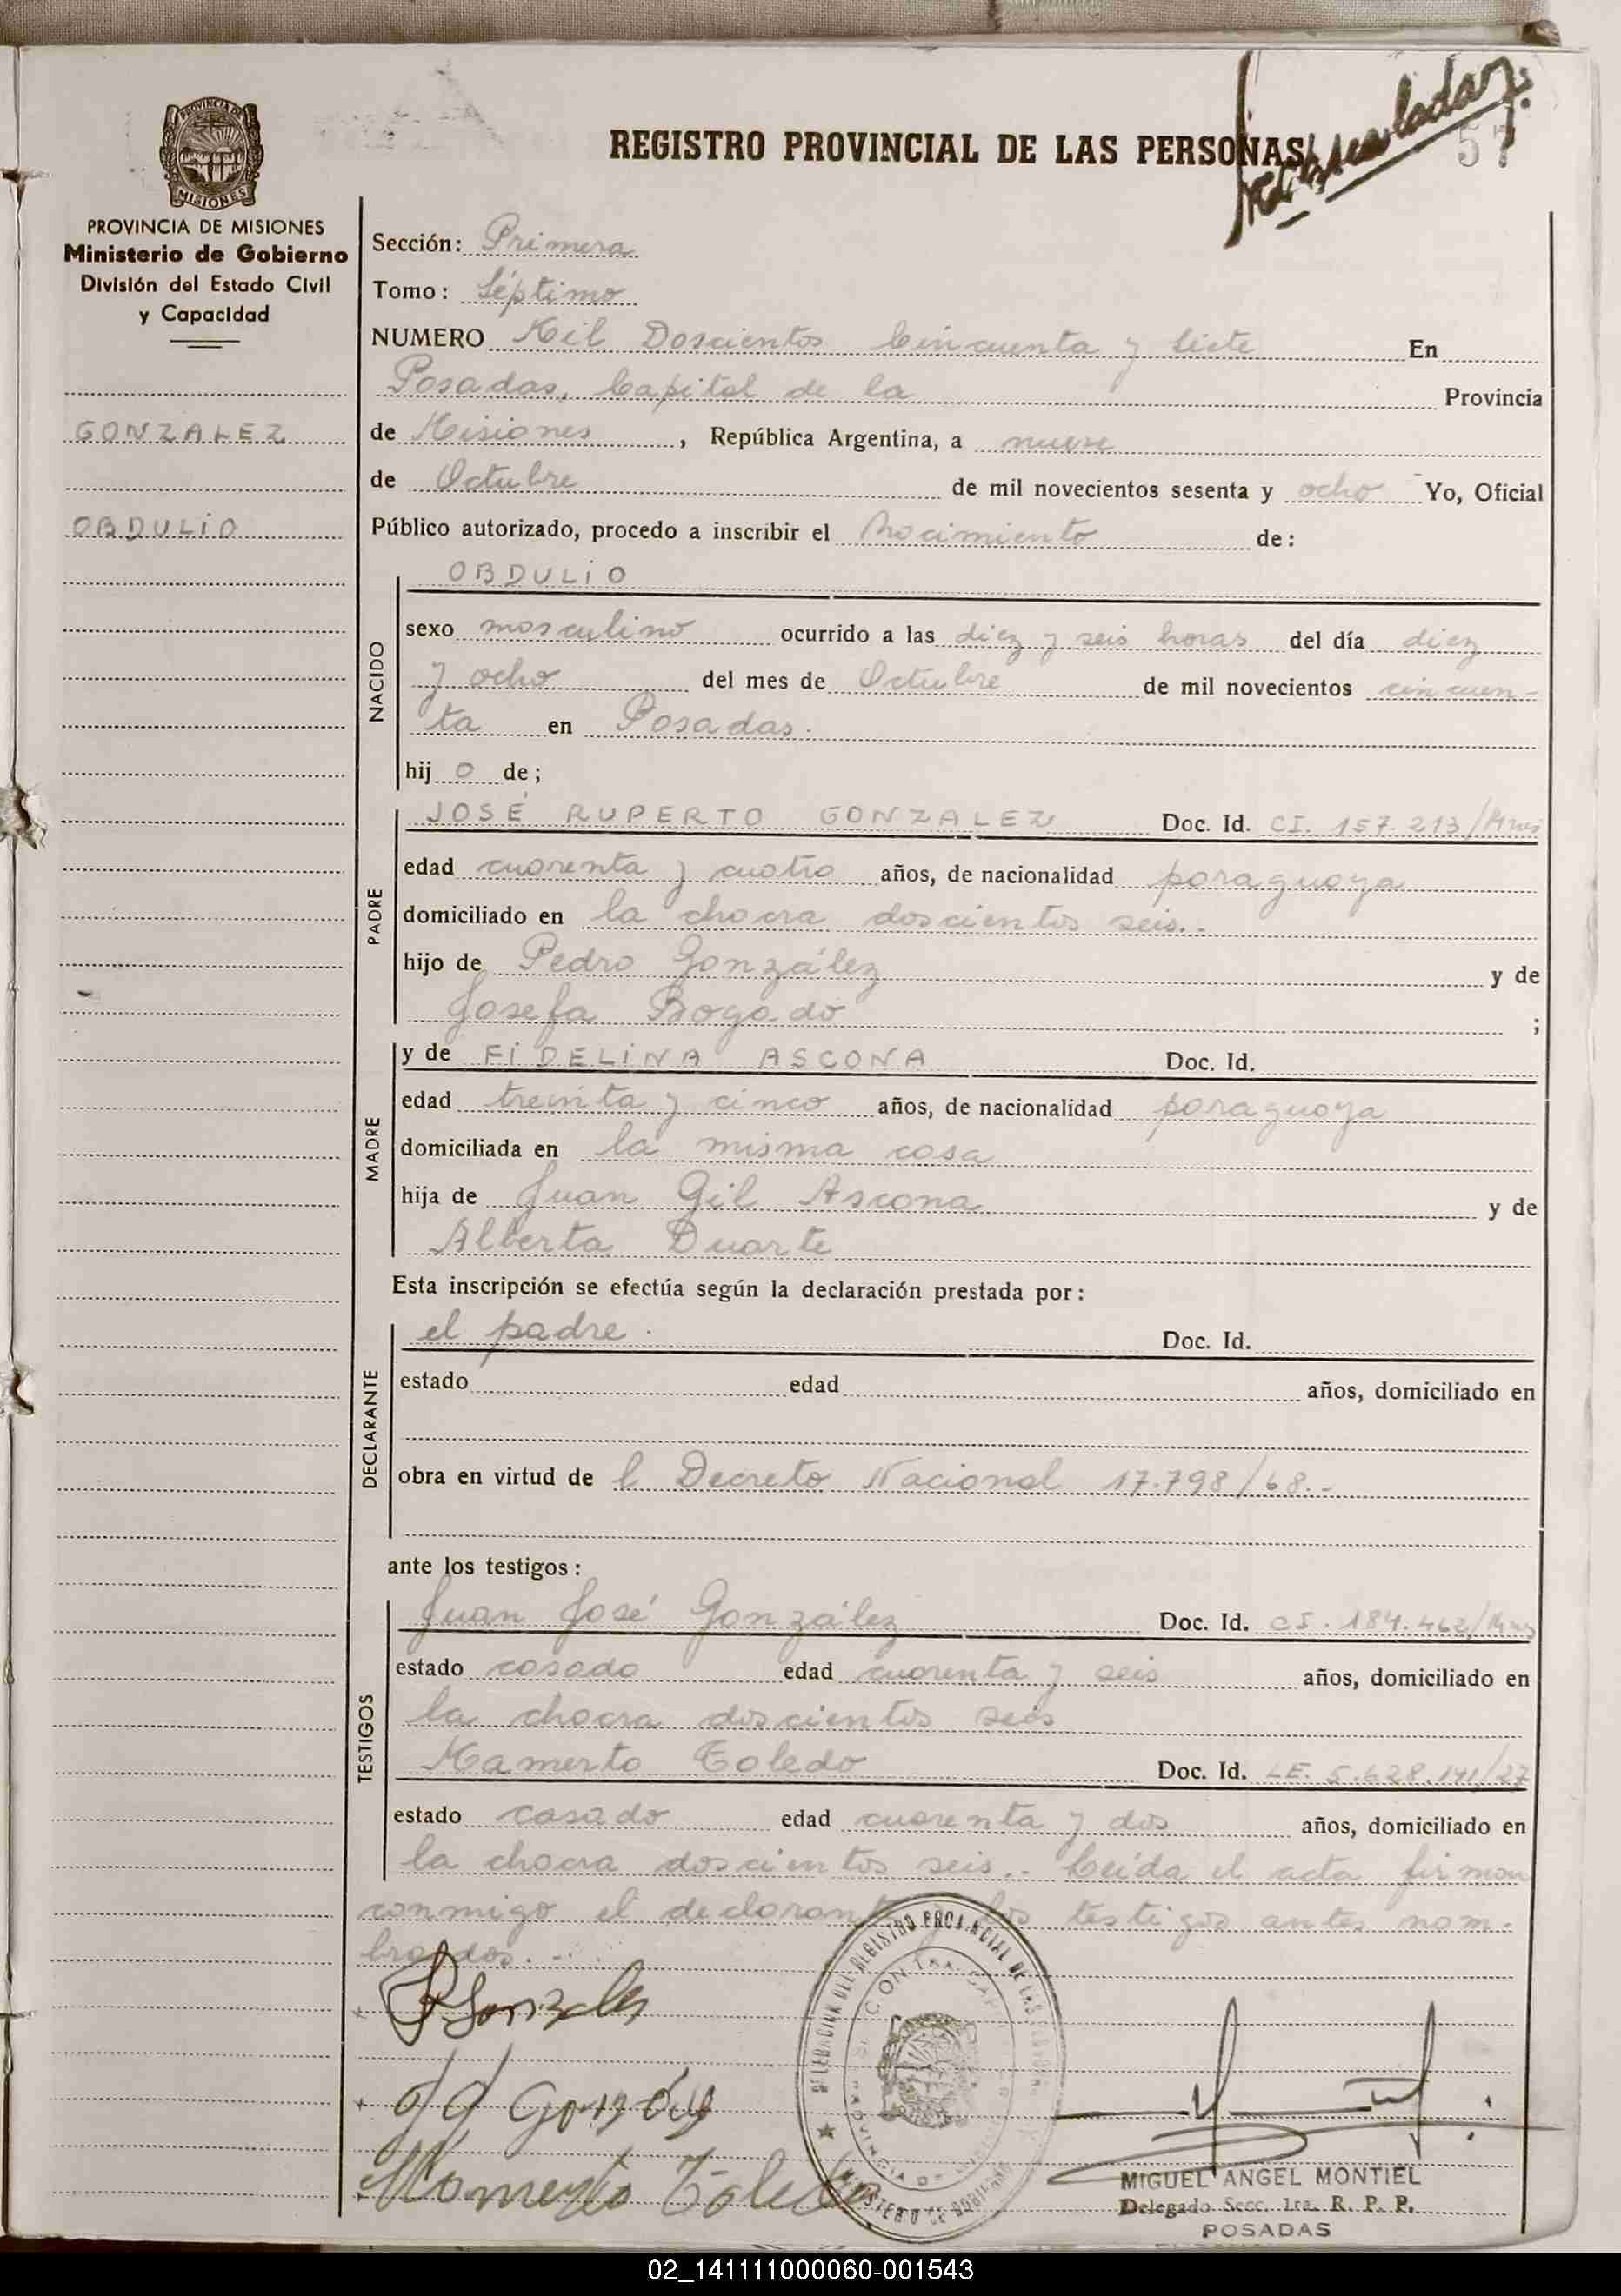 PROVINCIA DE
MISIONES
REGISTRO PROVINCIAL DE LAS PERSONAS
57
PROVINCIA DE MISIONES
Ministerio de Gobierno
División del Estado Civil
y Capacidad
GONZALEZ
OBDULIO
Sección: Primera
Tomo: Séptimo
NUMERO Mil Doscientos Cincuenta y Siete En
Posadas, Capital de la Provincia
de Misiones, República Argentina, a nueve
de Octubre de mil novecientos sesenta y ocho Yo, Oficial
Público autorizado, procedo a inscribir el Nacimiento de:
NACIDO
OBDULIO
sexo masculino ocurrido a las diez y seis horas del día diez
y ocho del mes de Octubre de mil novecientos cincuen-
ta en Posadas.
hijo de;
PADRE
JOSÉ RUPERTO GONZALEZ Doc. Id. CI. 157.213/Mnes
edad cuarenta y cuatro años, de nacionalidad paraguaya
domiciliado en la chacra doscientos seis.-
hijo de Pedro González y de
Josefa Bogado ;
MADRE
y de FIDELINA ASCONA Doc. Id.
edad treinta y cinco años, de nacionalidad paraguaya
domiciliada en la misma casa
hija de Juan Gil Ascona y de
Alberta Duarte
Esta inscripción se efectúa según la declaración prestada por:
DECLARANTE
el padre. Doc. Id.
estado edad años, domiciliado en
obra en virtud de l Decreto Nacional 17.798/68.-
ante los testigos:
TESTIGOS
Juan José González Doc. Id. CI. 184.462/Mnes
estado casado edad cuarenta y seis años, domiciliado en
la chacra doscientos seis
Mamerto Toledo Doc. Id. LE. 5.628.141/27
estado casado edad cuarenta y dos años, domiciliado en
la chacra doscientos seis.- Leída el acta firman
conmigo el declarante y los testigos antes nom-
brados.-
R Gonzales
JJ González
Mamerto Toledo
DELEGACION DEL REGISTRO PROVINCIAL DE LAS PERSONAS
MINISTERIO DE GOBIERNO
MIGUEL ANGEL MONTIEL
Delegado Secc. 1ra. R. P. P.
POSADAS
02_141111000060-001543